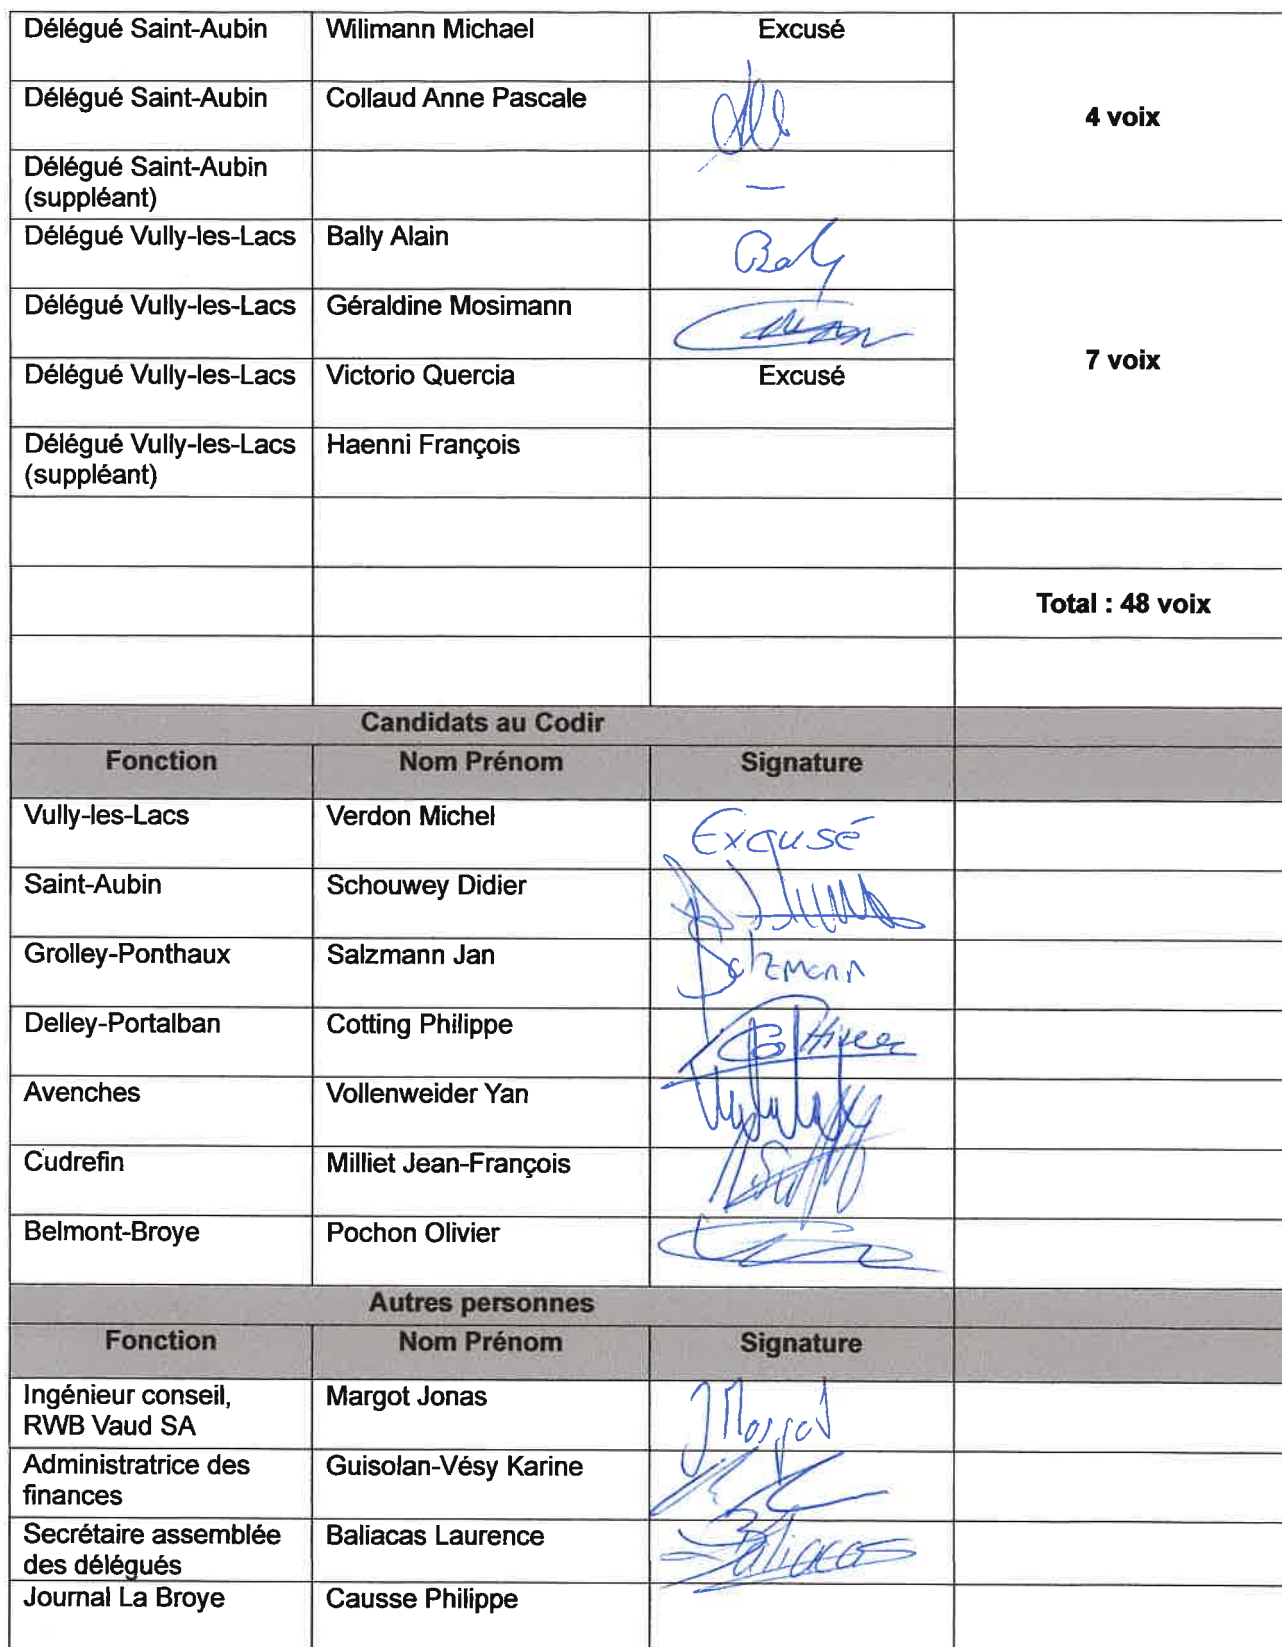 Délégué Saint-Aubin Wilimann Michael Excusé
Délégué Saint-Aubin Collaud Anne Pascale
4 voix
Délégué Saint-Aubin
(suppléant) —
Délégué Vully-les-Lacs Bally Alain Bally
Délégué Vully-les-Lacs Géraldine Mosimann
7 voix
Délégué Vully-les-Lacs Victorio Quercia Excusé
Délégué Vully-les-Lacs Haenni François
(suppléant)
Total : 48 voix
Candidats au Codir
Fonction Nom Prénom Signature
Vully-les-Lacs Verdon Michel Excusé
Saint-Aubin Schouwey Didier
Grolley-Ponthaux Salzmann Jan Salzmann
Delley-Portalban Cotting Philippe
Avenches Vollenweider Yan
Cudrefin Milliet Jean-François
Belmont-Broye Pochon Olivier
Autres personnes
Fonction Nom Prénom Signature
Ingénieur conseil, Margot Jonas J Margot
RWB Vaud SA
Administratrice des Guisolan-Vésy Karine
finances
Secrétaire assemblée Baliacas Laurence Baliacas
des délégués
Journal La Broye Causse Philippe